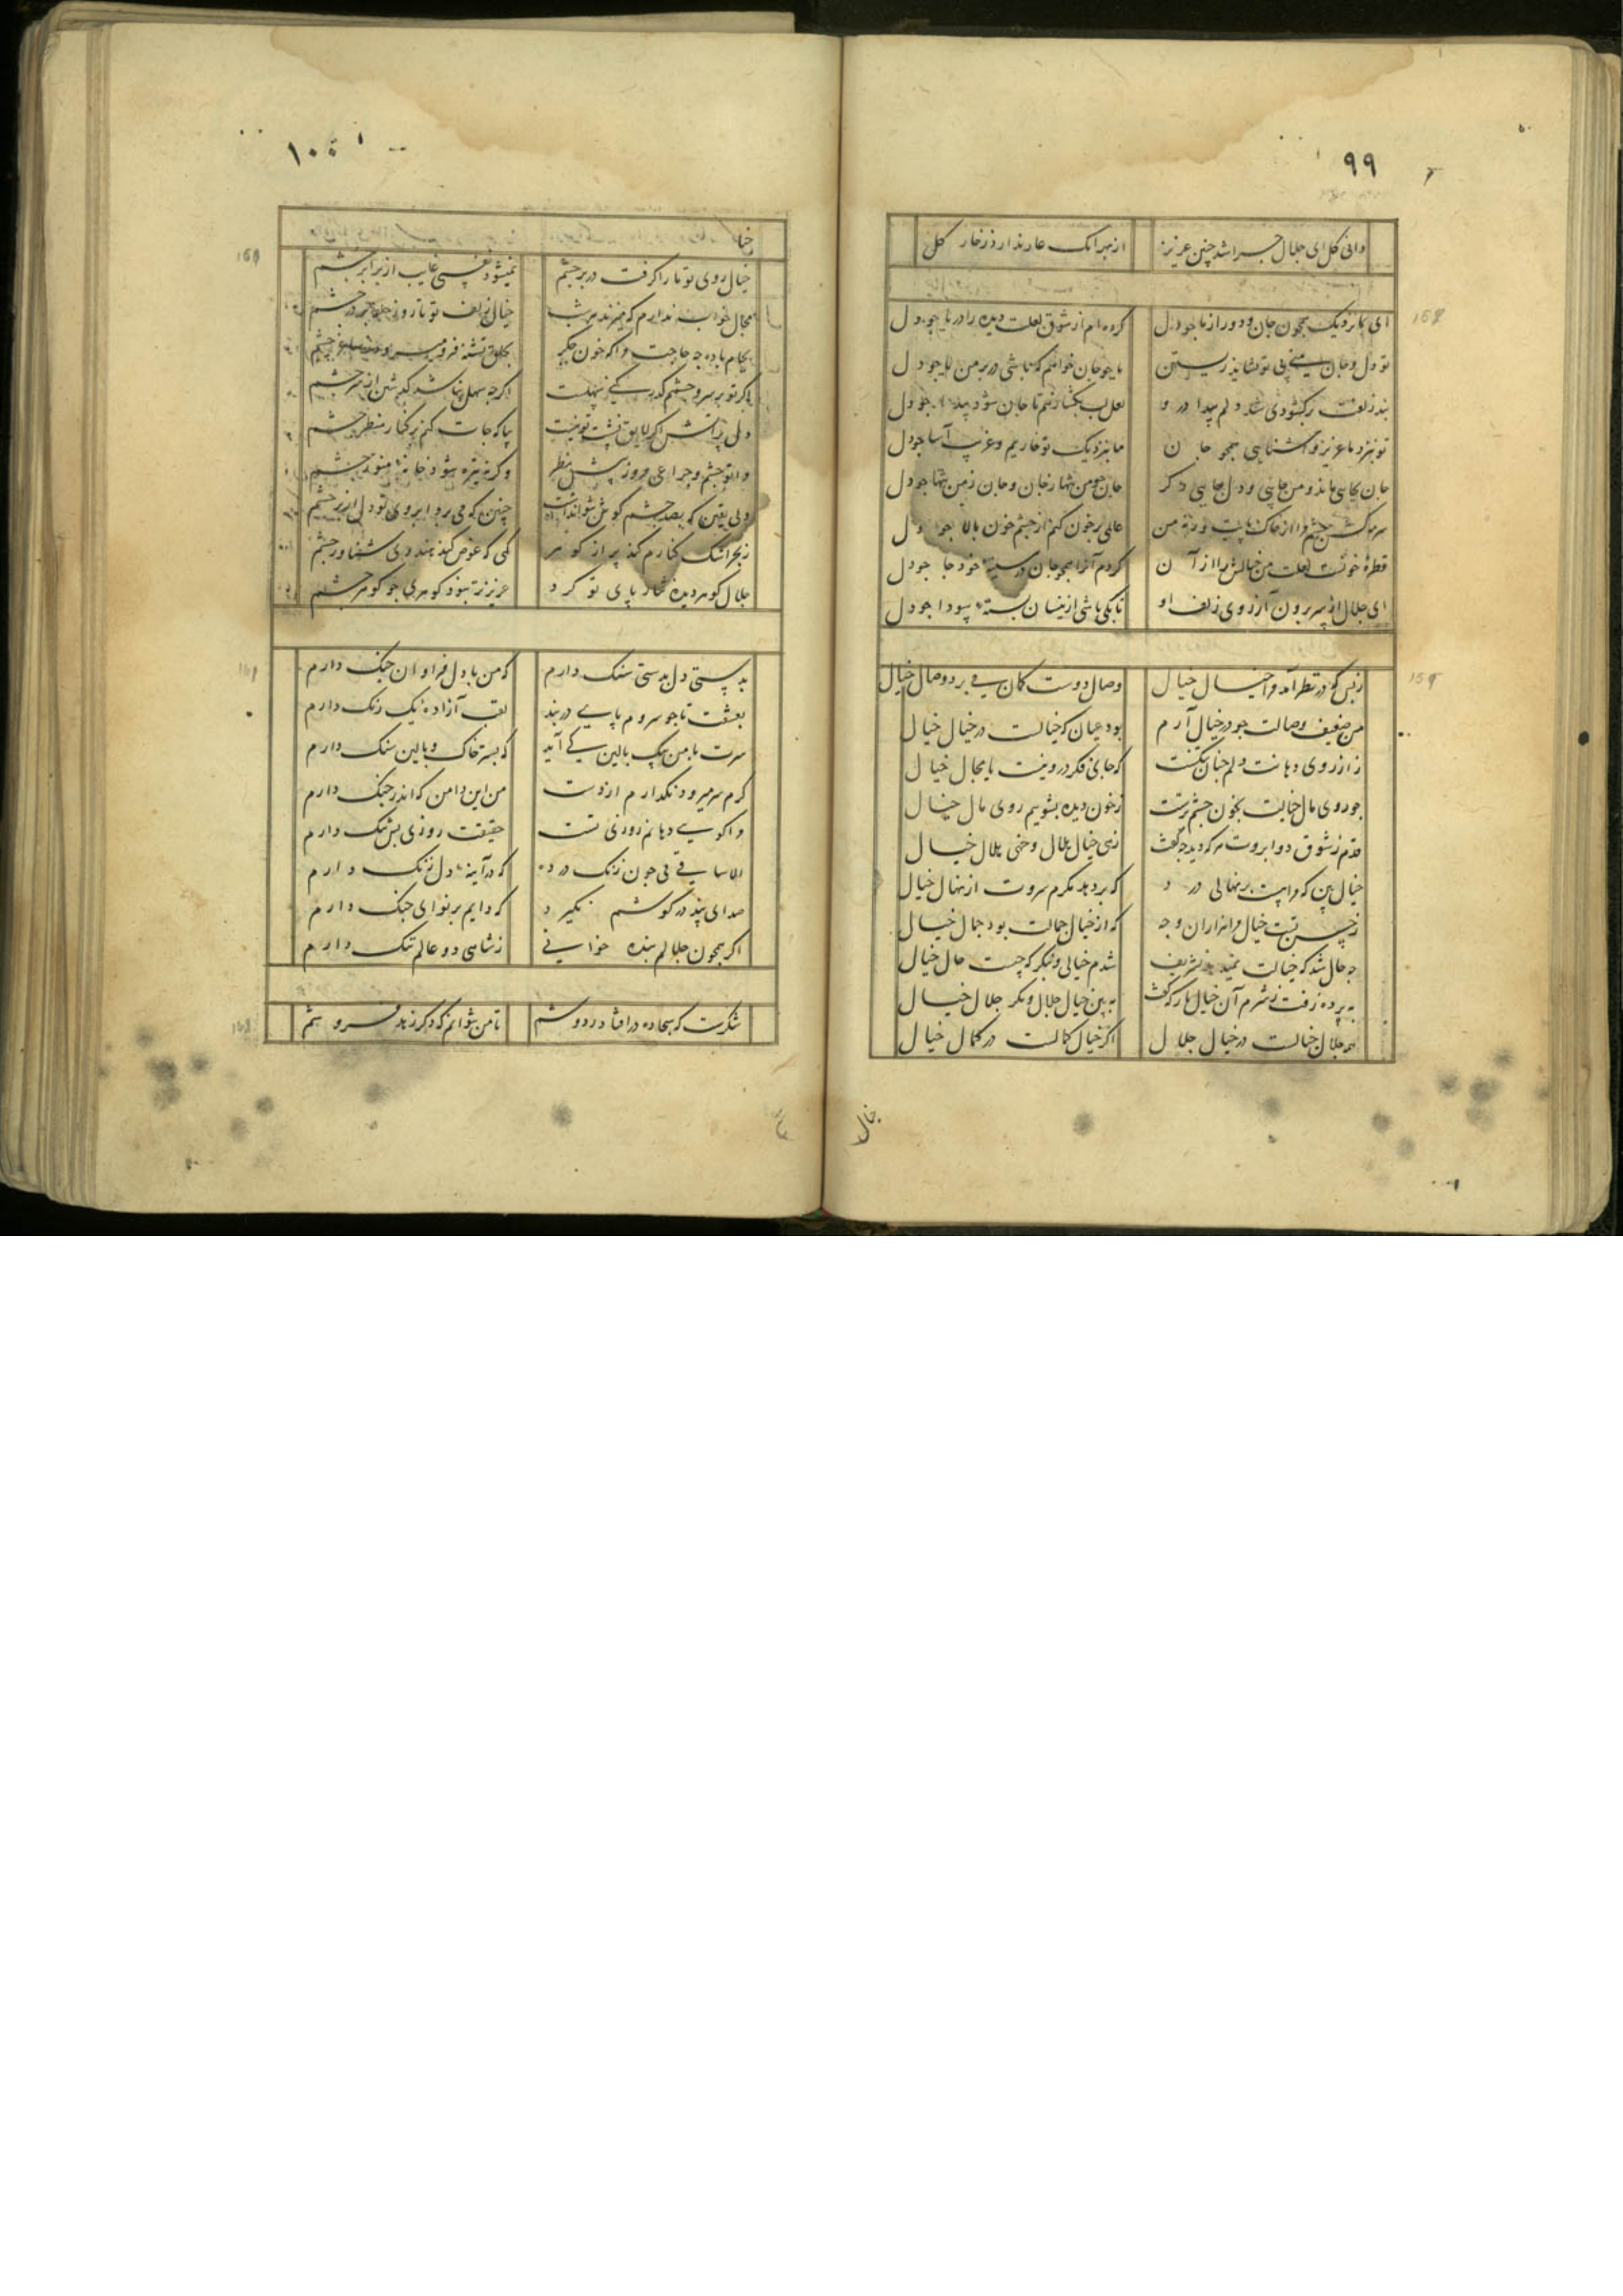 ۹۹
دانی کل ای جلال چرا شد چنین عزیز از بهر آنک عار ندارد ز خار کل
ای بما نزدیک همچون جان و دور از ما چو دل کرده‌ام از شوق لعلت دیده را دریا چو دل
تو دل و جان منی بی تو نشاید زیستن با چو جان خواهم که باشی در بر من یا چو دل
بند زلفت برکشودی شد دلم پیدا درو لعل لب بکشا ز هم تا جان شود پیدا چو دل
تو بنزد ما عزیز و آشنایی همچو جان ما بنزدیک تو خاریم و غریب آسا چو دل
جان بجایی ماند و من جایی و دل جایی دکر جان چو من تنها ز جان و جان ز من تنها چو دل
سرمه کش چشم مرا از خاک پایت ورنه من عالمی پر خون کنم از چشم خون بالا چو دل
قطرهٔ خونست لعلت من خیالش را از آن کردم آنرا همچو جان در سینهٔ خود جا چو دل
ای جلال از سر برون آر آرزوی زلف او تا بکی باشی ازینسان بستهٔ سودا چو دل
ز بس که در نظر آمد مرا خیال خیال وصال دوست کمان می برد وصال خیال
من ضعیف وصالت چو در خیال آرم بود عیان که خیالست در خیال خیال
ز آرزوی دهانت دلم چنان تنکست که جای فکر درو نیست یا مجال خیال
چو روی مال خیالت بخون چشم ترست ز خون دیده بشوییم روی مال خیال
قدم ز شوق دو ابروت هر که دید چه گفت زهی خیال هلال و خهی هلال خیال
خیال بین که مراهست بر نهالی درد که بر دهد مکرم سروت از نهال خیال
ز حسن تست خیال مرا هزاران وجه که از خیال جمالت بود جمال خیال
چه حال شد که خیالت نمیدهد تشریف شدم خیالی و بنکر که چیست حال خیال
به پرده رفت ز شرم آن خیال باز که گفت به بین خیال جلال و نکر جلال خیال
همه جلال خیالست در خیال جلال اکر خیال کمالست در کمال خیال
خیال
۱۰۰
خیال
خیال روی تو تا راکرفت در بر چشم نمیشود نفسی غایب از برابر چشم
مجال خواب ندارم که میزند هر شب خیال زلف تو تا روز حلقه بر در چشم
بجام باده چه حاجت مرا که خون جکر بحلق تشنه فرو میرود ز ساغر چشم
اکر تو بر سر و چشمم کذر کنی سهلست اکرچه سهل نباشد کذشتن از سر چشم
دلی پر آتشم اکر لایق نشست تو نیست بیا که جات کنم بر کنار منظر چشم
مرا تو چشم و چراغی مرو ز پیش نظر وکرنه تیره شود خانهٔ منور چشم
ولی یقین که بصد چشم کوش نتواند داشت چنین که می برد ابروی تو دل از بر چشم
ز بحر اشک کنارم کند پر از کوهر کهی که غوص کند هندوی شناور چشم
جلال کوهر دیده نثار پای تو کرد عزیزتر نبود کوهری چو کوهر چشم
بدستی دل بدستی سنک دارم که من با دل فراوان جنک دارم
بعشقت تا چو سروم پای دربند لقب آزادهٔ یک رنک دارم
سرت با من بیک بالین کی آید که بستر خاک و بالین سنک دارم
کرم سر میرود نکذارم از دست من این دامن که اندر چنک دارم
مرا کویی دهانم روزی تست حقیقت روزی بس تنک دارم
الا ساقی می چون زنک درده که در آینهٔ دل زنک دارم
صدای پند در کوشم نکیرد که دایم بر نوای چنک دارم
اکر همچون جلالم بنده خوانی ز شاهی دو عالم ننک دارم
شکرست که سجاده درافتاد ز دوشم تا من نتوانم که دکر زهد فروشم